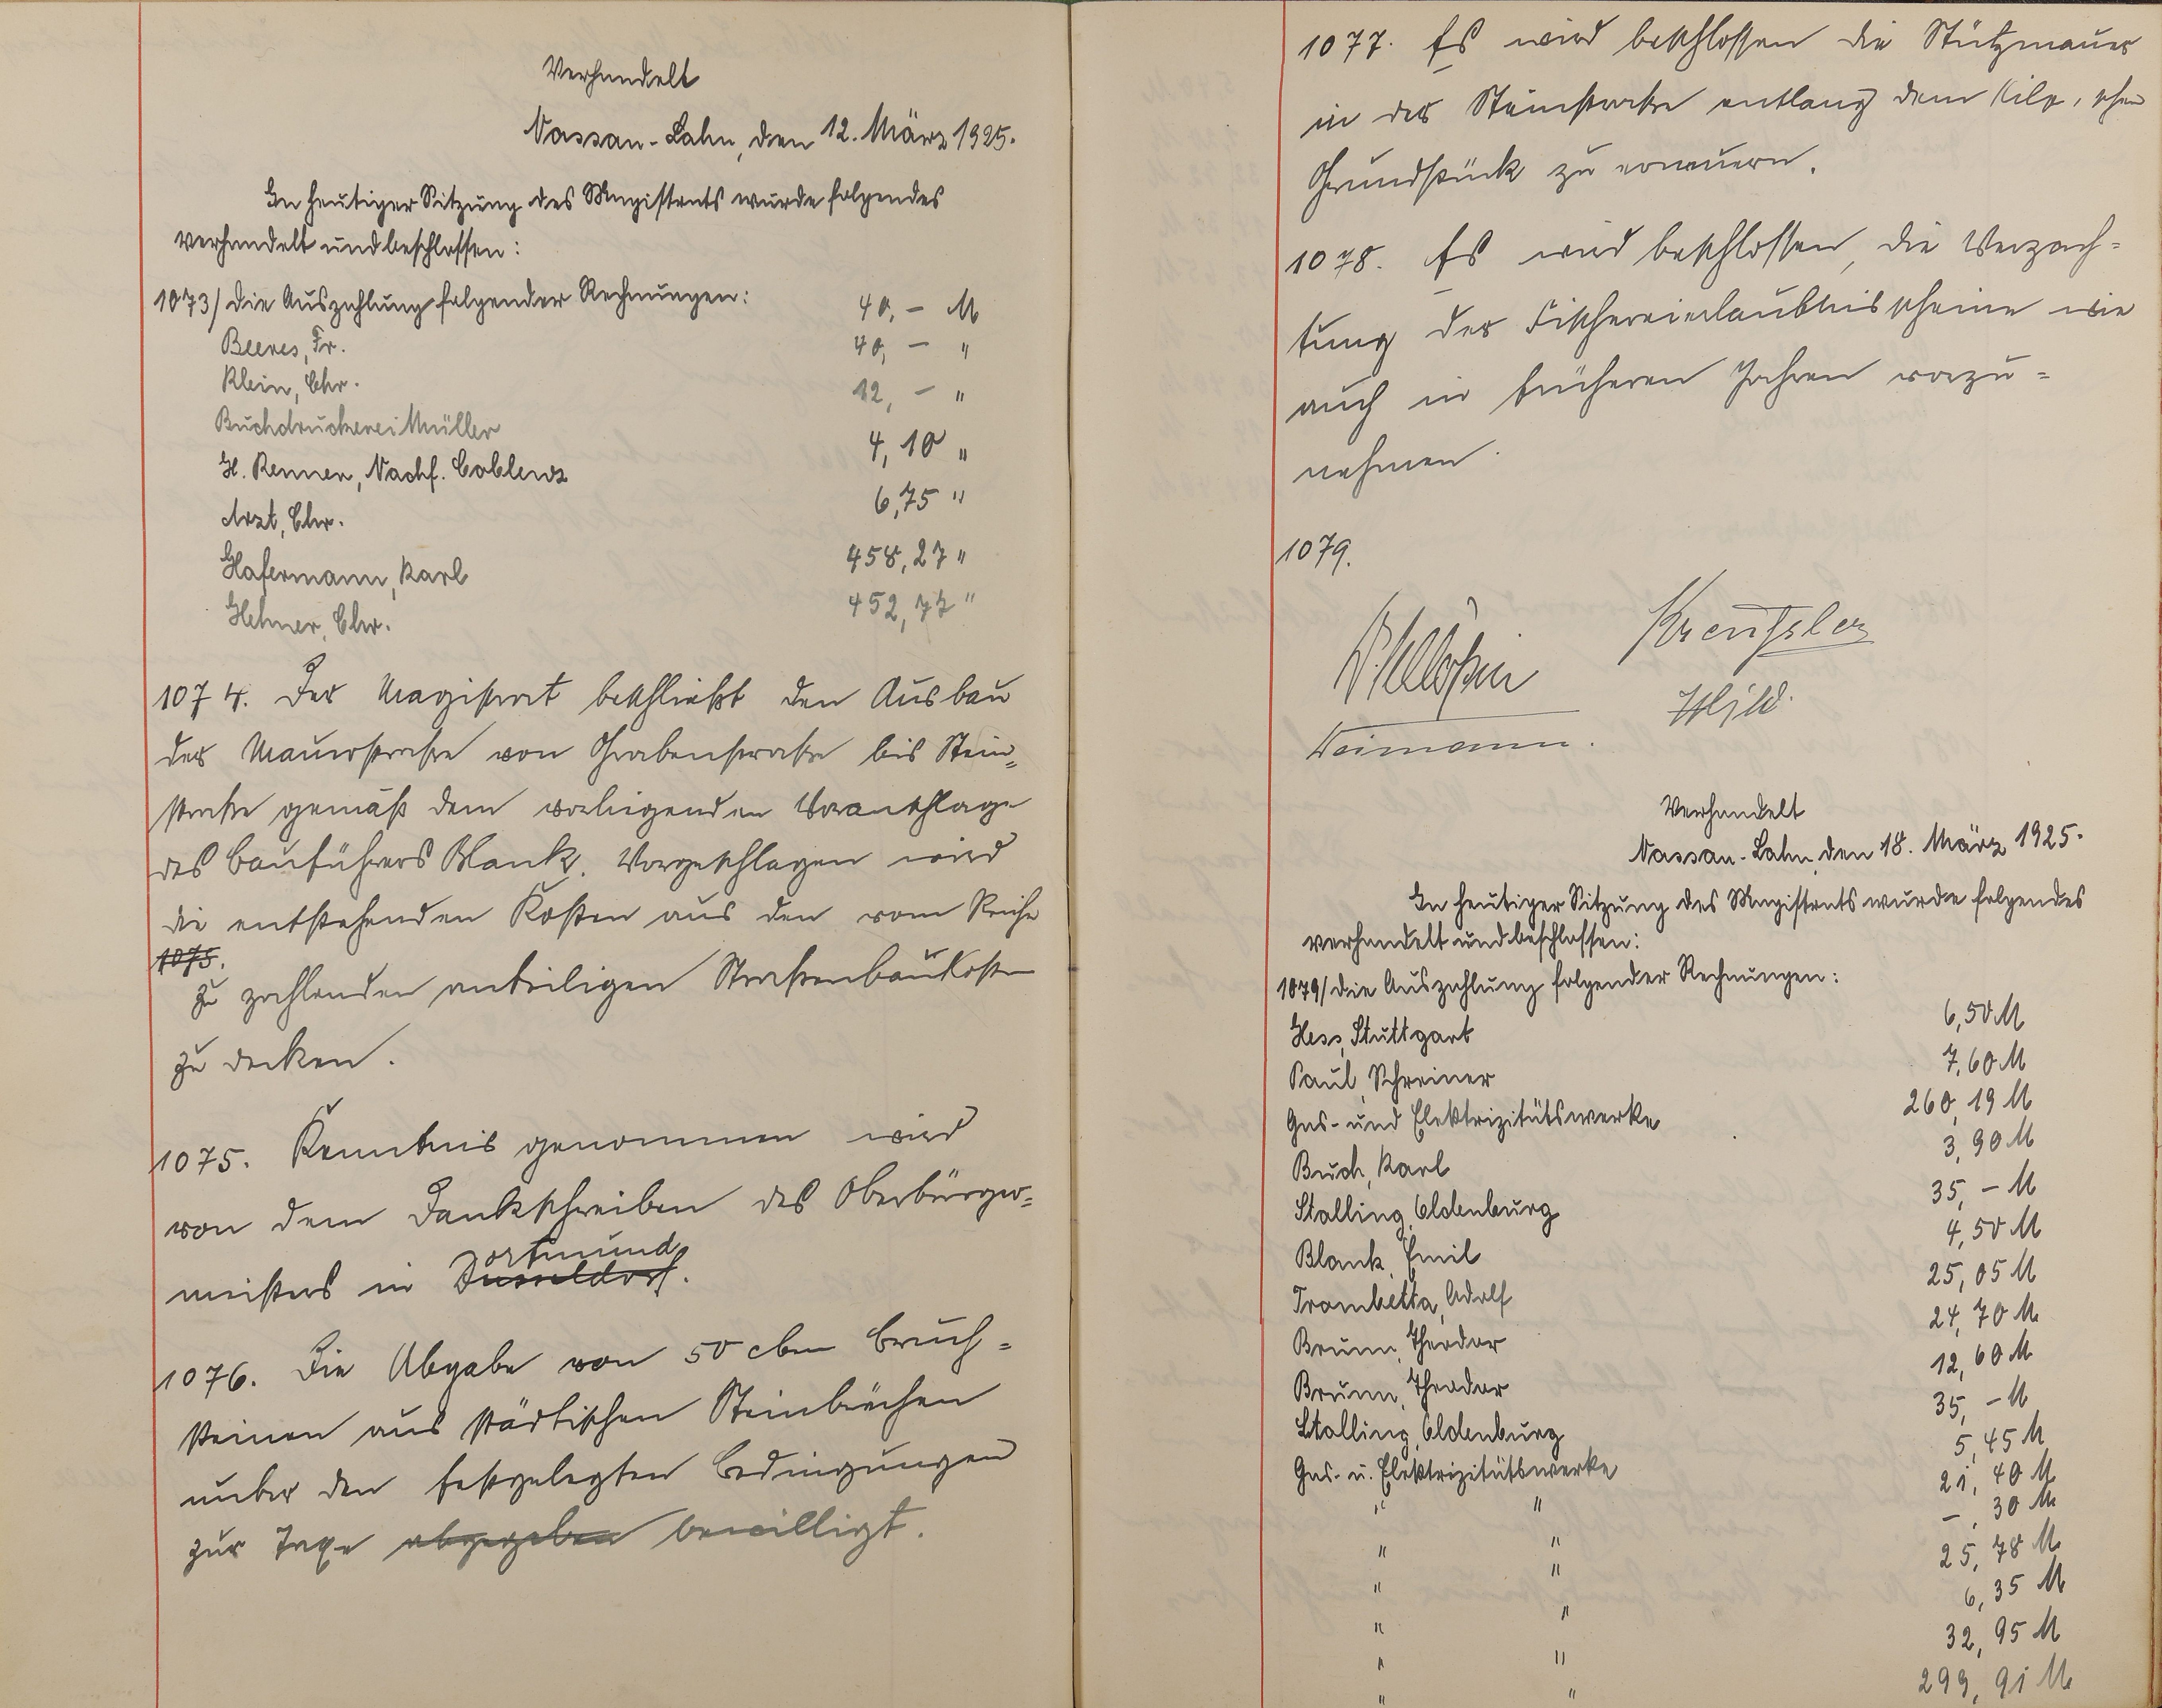 Verhandelt
Nassau-Lahn, den 12. März 1925.
In heutiger Sitzung des Magistrats wurde folgendes
verhandelt und beschlossen:
1073/ die Auszahlung folgender Rechnungen:
Beeres, Fr. 40,- M
Klein, Chr. 40,- "
Buchdruckerei Müller 12,- "
H. Remen, Nachf. Coblenz 4,10 "
Arzt, Chr. 6,75 "
Hafermann, Karl 458,27 "
Hehner, Chr. 452,77 "
1074. Der Magistrat beschließt den Ausbau
der Mauerstraße von Grabenstraße bis Stein=
straße gemäß dem vorliegenden Voranschlage
des Bauführers Blank. Vorgeschlagen wird
die entstehenden Kosten aus den vom Reiche
1075.
zu zahlenden anteiligen Straßenbaukosten
zu decken.
1075. Kenntnis genommen wird
von dem Dankschreiben des Oberbürger=
meisters in Düsseldorf. Dortmund
1076. Die Abgabe von 50 cbm Bruch=
steinen aus städtischen Steinbrüchen
unter den festgelegten Bedingungen
zur Taxe abgegeben bewilligt.
1077. Es wird beschlossen die Stützmauer
in der Steinstraße entlang dem Kilp'schen
Grundstück zu erneuern.
1078. Es wird beschlossen, die Verpach=
tung der Fischereierlaubnisscheine wie
auch in früheren Jahren vorzu=
nehmen.
1079.
Kreuzler
Hild.
Weimann.
Verhandelt
Nassau-Lahn, den 18. März 1925.
In heutiger Sitzung des Magistrats wurde folgendes
verhandelt und beschlossen:
1079/ die Auszahlung folgender Rechnungen:
Hess, Stuttgart 6,50 M
Paul, Schreiner 7,60 M
Gas- und Elektrizitätswerke 260,19 M
Buch, Karl 3,90 M
Stalling, Oldenburg 35,- M
Blank, Emil 4,50 M
Trombetta, Adolf 25,05 M
Brunn, Theodor 24,70 M
Brunn, Theodor 12,60 M
Stalling, Oldenburg 35,- M
Gas- u. Elektrizitätswerke 5,45 M
" " 21,40 M
" " -,30 M
" " 25,78 M
" " 6,35 M
" " 32,95 M
" " 299,91 M